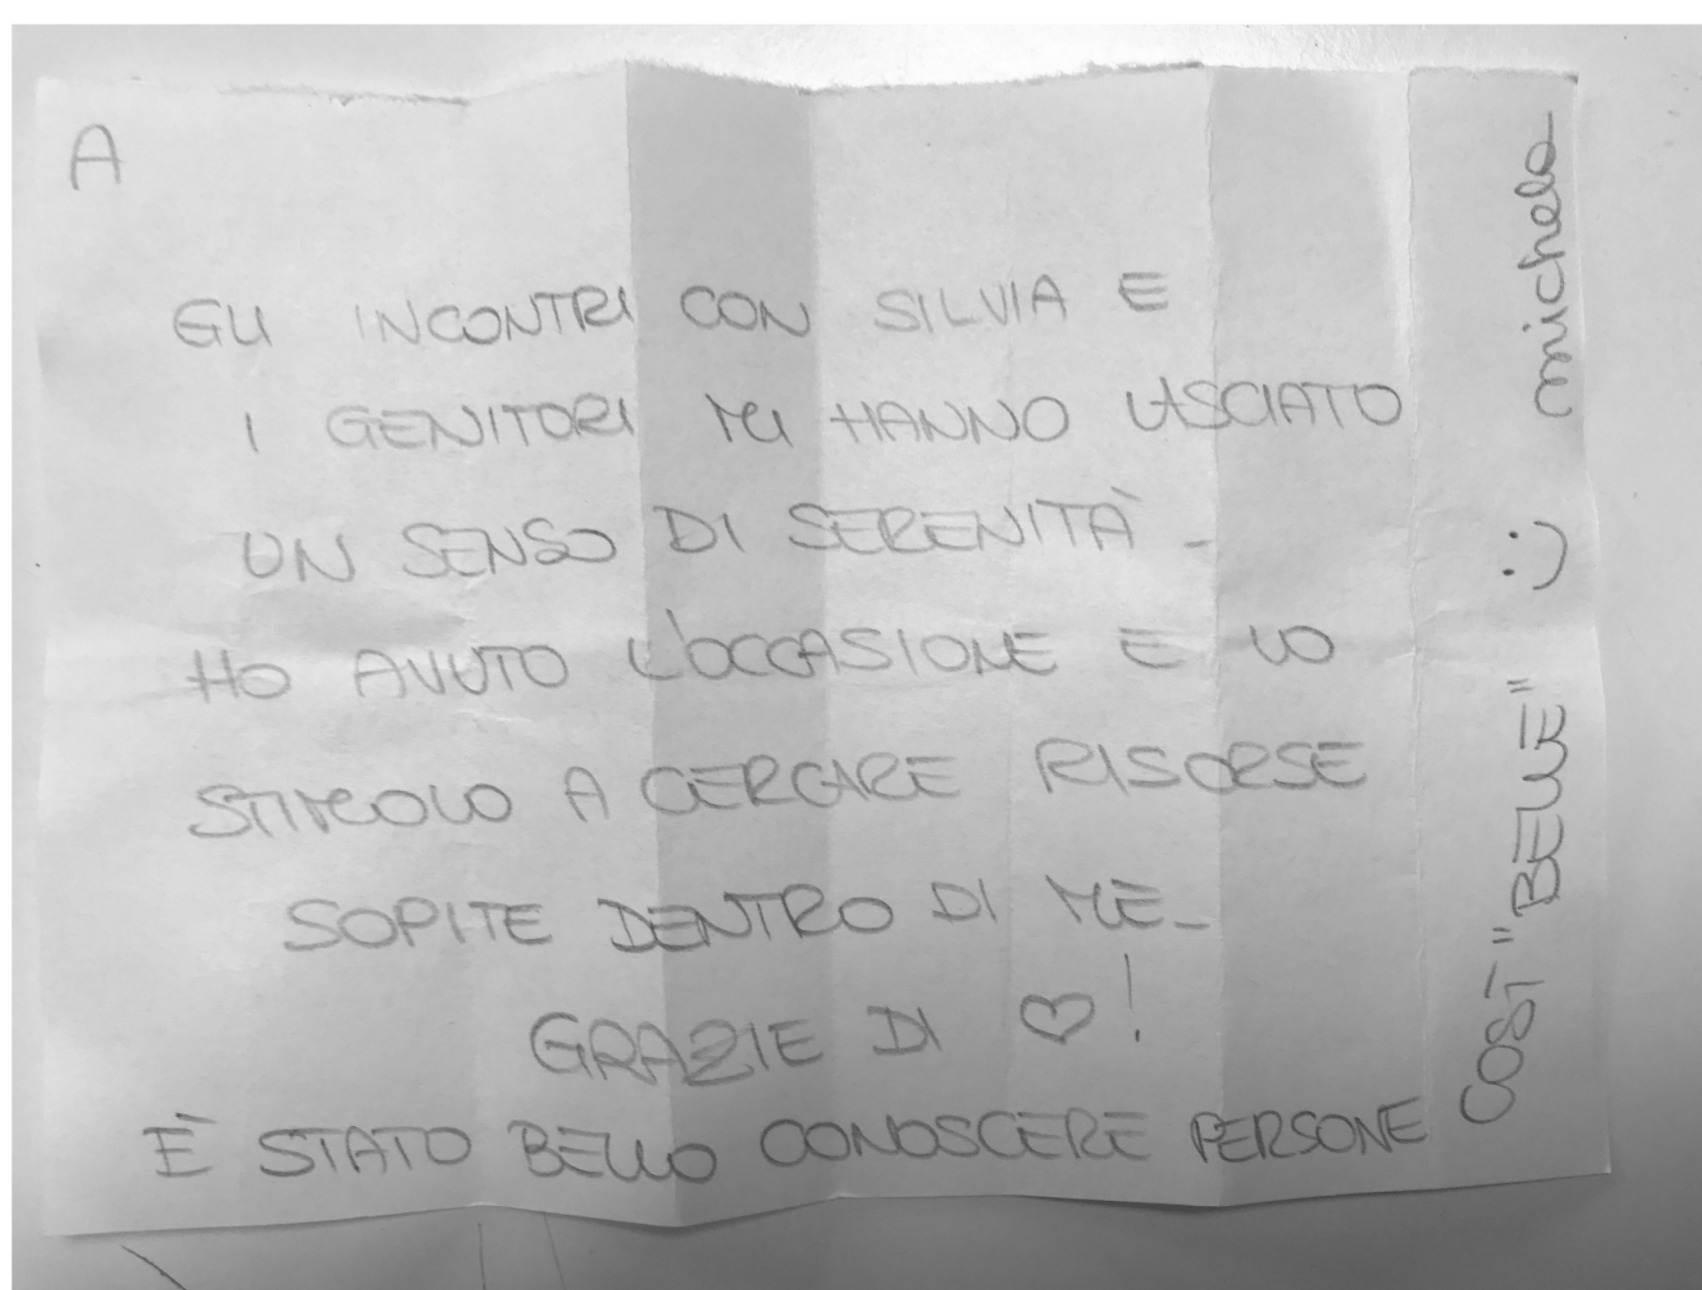 A
GLI INCONTRI CON SILVIA E
I GENITORI MI HANNO LASCIATO
UN SENSO DI SERENITÀ -
HO AVUTO L'OCCASIONE E LO
STIMOLO A CERCARE RISORSE
SOPITE DENTRO DI ME -
GRAZIE DI ♡!
È STATO BELLO CONOSCERE PERSONE
COSÌ "BELLE" :) michela